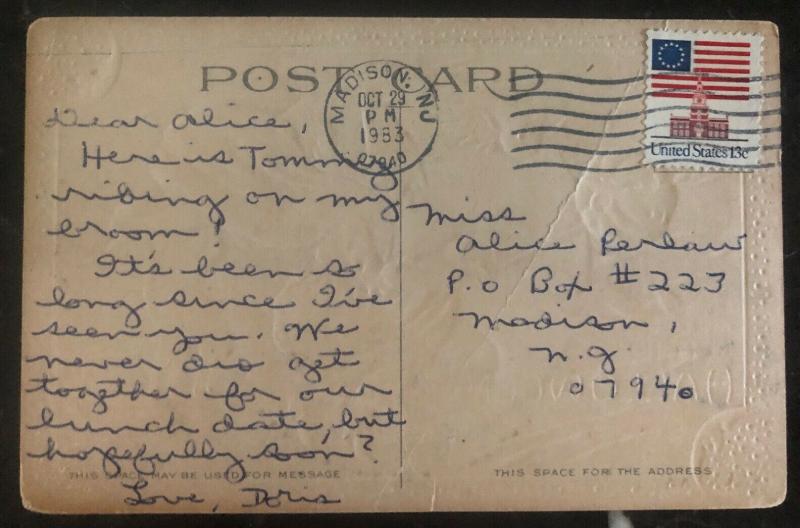 POST CARD
MADISON, NJ
OCT 29
PM
1983
07940
United States 13c
Dear Alice,
Here is Tommy
riding on my
broom!
It's been so
long since I've
seen you. We
never did get
together for our
lunch date, but
hopefully soon?
Love, Doris
THIS SPACE MAY BE USED FOR MESSAGE
Miss
Alice Perlaw
P.O Box #223
Madison,
N.J.
07940
THIS SPACE FOR THE ADDRESS